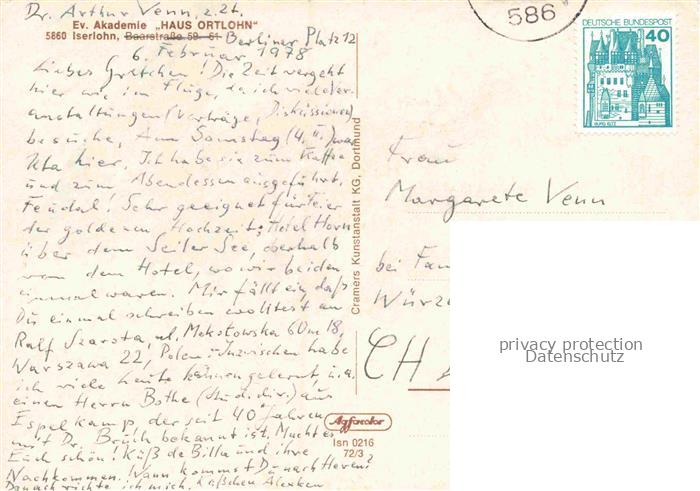 Dr. Arthur Venn, z. Zt.
Ev. Akademie „HAUS ORTLOHN"
5860 Iserlohn, Baarstraße 59-61 Berliner Platz 12
6. Februar 1978
Liebes Gretchen! Die Zeit vergeht
hier wie im Fluge, da ich viele Ver-
anstaltungen (Vorträge, Diskussionen)
besuche. Am Samstag (4. II.) war
Uta hier. Ich habe sie zum Kaffee
und zum Abendessen ausgeführt.
Feudal! Sehr geeignet für Feier
der goldenen Hochzeit: Hotel Horn
über dem Seiler See, oberhalb
von dem Hotel, wo wir beiden
einmal waren. Mir fällt ein, daß
Du einmal schreiben wolltest an
Ralf Szarota, ul. Mokotowska 60 m 18,
Warszawa 22, Polen. Inzwischen habe
ich viele Leute kennengelernt, u.a.
einen Herrn Bothe (Stud. dir.) aus
Espelkamp, der seit 40 Jahren
mit Dr. Brüch bekannt ist. Macht es
Euch schön! Küß de Billa und ihre
Nachkommen. Wann kommst Du nach Heven?
Danach richte ich mich. Küßchen
Cramers Kunstanstalt KG, Dortmund
586
DEUTSCHE BUNDESPOST
40
BURG ELTZ
Frau
Margarete Venn
bei Fam
Würze
CH
Agfacolor
Isn 0216
72/3
privacy protection
Datenschutz